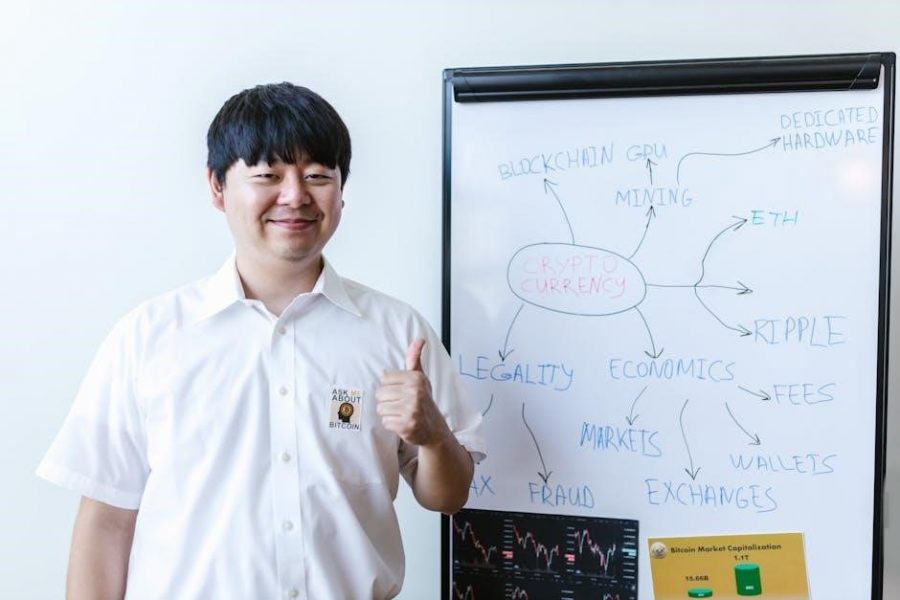 DEDICATED
HARDWARE
BLOCKCHAIN
GPU
MINING
ETH
CRYPTO
CURRENCY
RIPPLE
LEGALITY
ECONOMICS
FEES
MARKETS
WALLETS
AX
FRAUD
EXCHANGES
ASK ME
ABOUT
BITCOIN
Bitcoin Market Capitalization
1.1T
15.66B